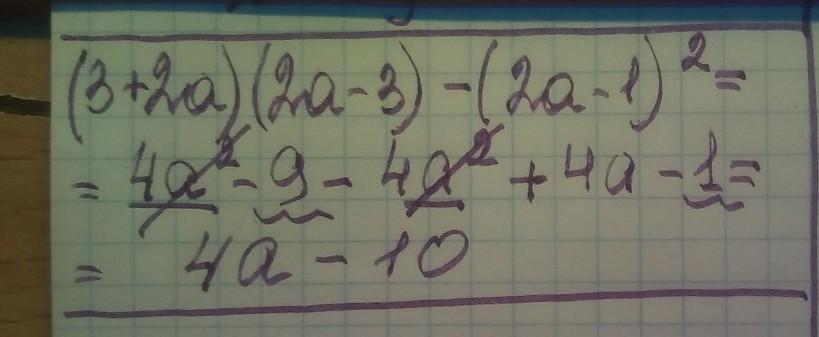 (3+2a)(2a-3)-(2a-1)²=
= 4a²-9-4a²+4a-1=
= 4a-10